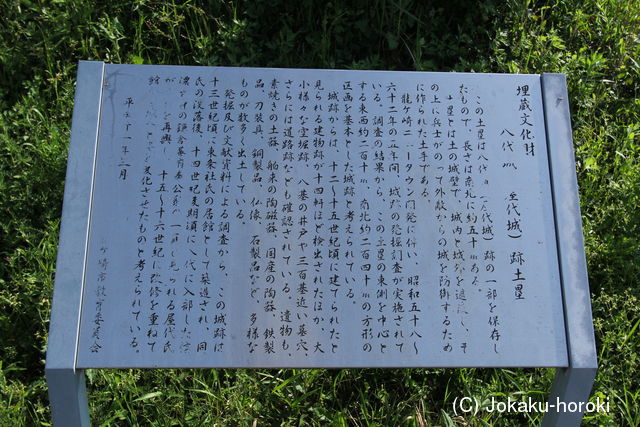 埋蔵文化財
八代 城) 跡土塁
この土塁は八代 代城) 跡の一部を保存し
たもので、長さは南北に約五十 ある。
土塁とは土の城壁で、城内と城外を し、そ
の上に兵士がのって外敵からの城を防御するため
に作られた土手である。
龍ヶ崎ニュータウン開発に伴い、昭和五十八~
六十二年の五年間、城跡の発掘調査が実施されて
いる。調査の結果から、この土塁の東側を中心と
する東西約二百十m、南北約二百四十mの方形の
区画を基本とした城跡と考えられている。
城跡からは、十三~十五世紀頃に建てられたと
見られる建物跡が十四軒ほど検出されたほか、大
小様々な空堀跡、八基の井戸や三百基近い墓穴、
さらには道路跡なども確認されている。遺物も、
素焼きの土器、舶来の陶磁器、国産の陶器、鉄製
品、刀装具、銅製品、仏像、石製品など、多様な
ものが数多く出土している。
発掘及び文献資料による調査から、この城跡は
十三世紀頃に東条社氏の居館として築造され、同
氏の没落後、十四世紀後期頃に八代に入部した
の鎌倉 公 の一 と見られる屋代氏
が を再興し、十五~十六世紀に改修を重ねて
館 変化させたものと考えられている。
平成 年 月
崎市教育委員会
(C) Jokaku-horoki